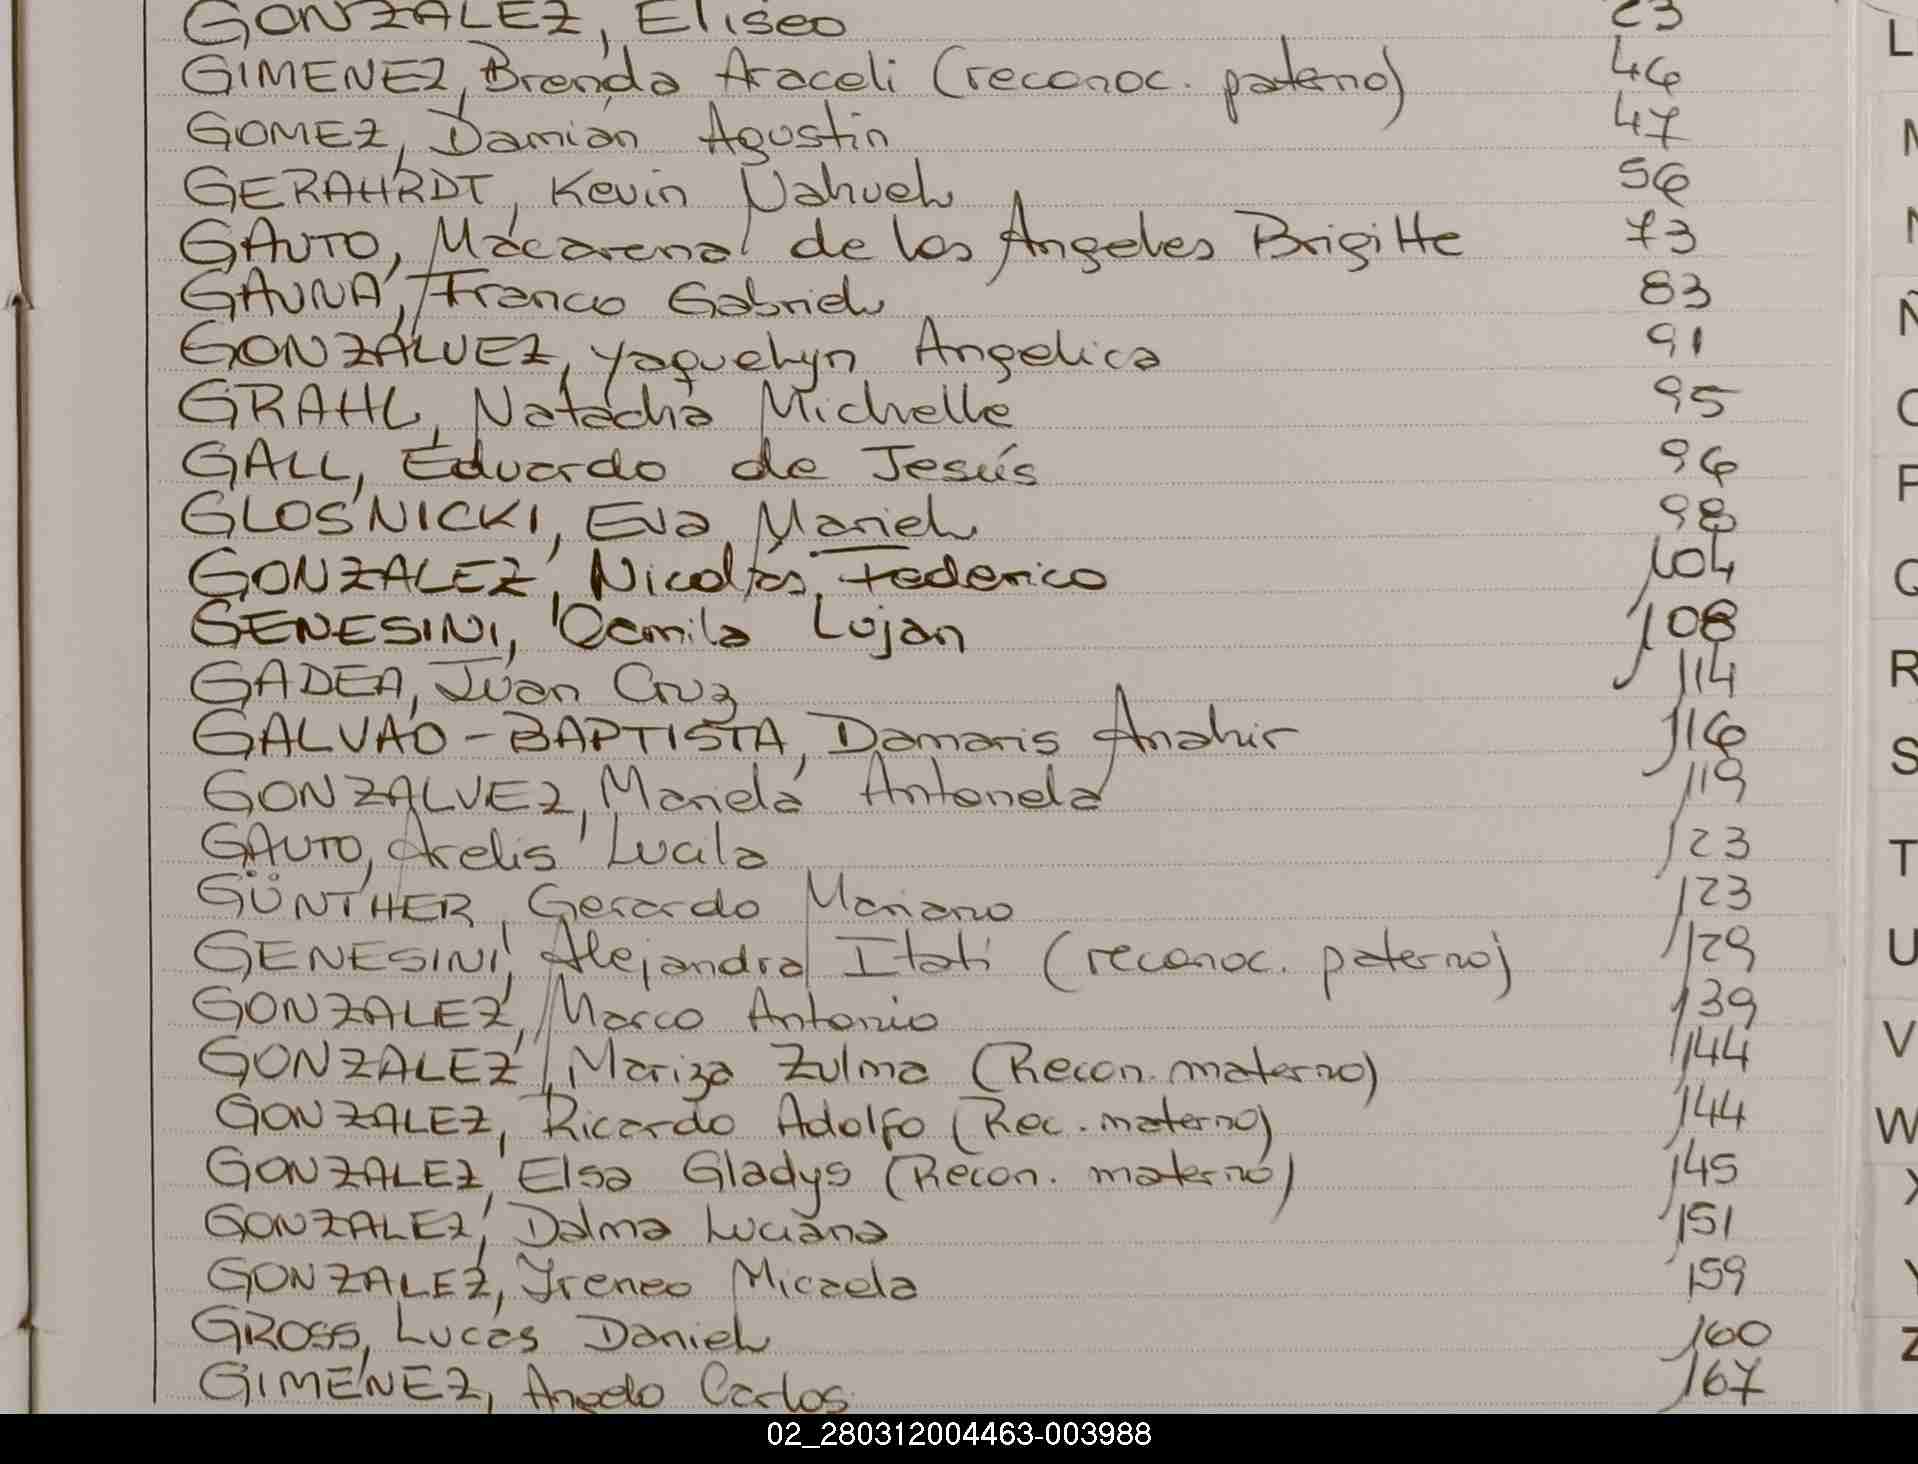 GONZALEZ, Eliseo 23
GIMENEZ, Brenda Araceli (reconoc. paterno) 46
GOMEZ, Damián Agustín 47
GERAHRDT, Kevin Nahuel 56
GAUTO, Macarena de los Angeles Brigitte 73
GAUNA, Franco Gabriel 83
GONZALVEZ, Yaquelyn Angelica 91
GRAHL, Natacha Michelle 95
GALL, Eduardo de Jesús 96
GLOSNICKI, Eva Mariel 98
GONZALEZ, Nicolás Federico 104
GENESINI, Camila Lujan 108
GADEA, Juan Cruz 114
GALVAO-BAPTISTA, Damaris Anahir 116
GONZALVEZ, Mariela Antonela 119
GAUTO, Arelis Lucila 123
GÜNTHER, Gerardo Mariano 123
GENESINI, Alejandra Itatí (reconoc. paterno) 129
GONZALEZ, Marco Antonio 139
GONZALEZ, Mariza Zulma (Recon. materno) 144
GONZALEZ, Ricardo Adolfo (Rec. materno) 144
GONZALEZ, Elsa Gladys (Recon. materno) 145
GONZALEZ, Dalma Luciana 151
GONZALEZ, Ireneo Micaela 159
GROSS, Lucas Daniel 160
GIMENEZ, Angelo Carlos 167
L
M
N
Ñ
O
P
Q
R
S
T
U
V
W
X
Y
Z
02_280312004463-003988